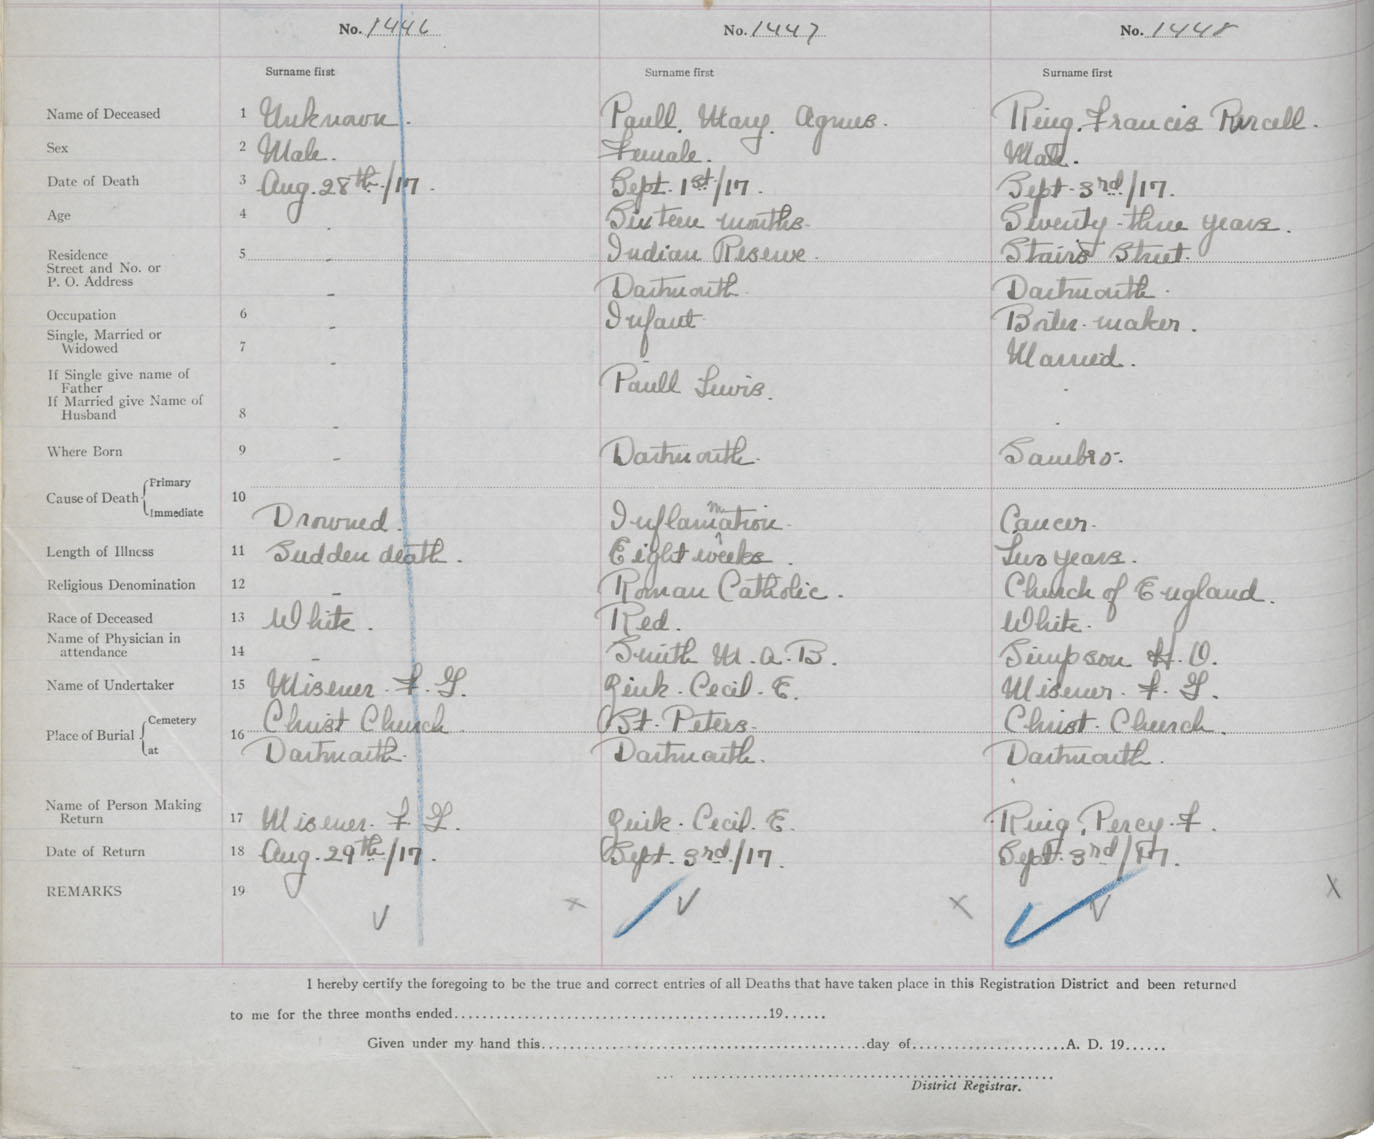 No. 1446 No. 1447 No. 1448
Surname first Surname first Surname first
Name of Deceased 1 Unknown. Paull, Mary, Agnus. Ring, Francis Purcell.
Sex 2 Male. Female. Male.
Date of Death 3 Aug. 28th/17. Sept. 1st/17. Sept. 3rd/17.
Age 4 - Sixteen months. Seventy-three years.
Residence 5 - Indian Reserve. Stairs Street.
Street and No. or
P. O. Address - Dartmouth. Dartmouth.
Occupation 6 - Infant Boiler-maker.
Single, Married or
Widowed 7 - - Married.
If Single give name of
Father Paull Lewis. -
If Married give Name of
Husband 8 - -
Where Born 9 - Dartmouth. Sambro.
Cause of Death Primary 10
Immediate Drowned. Inflammation. Cancer.
Length of Illness 11 Sudden death. Eight weeks. Two years.
Religious Denomination 12 - Roman Catholic. Church of England.
Race of Deceased 13 White. Red. White.
Name of Physician in
attendance 14 - Smith M.A.B. Simpson H.O.
Name of Undertaker 15 Misener. F. G. Zink. Cecil. E. Misener. F. G.
Place of Burial Cemetery 16 Christ Church St. Peters. Christ. Church.
at Dartmouth. Dartmouth. Dartmouth.
Name of Person Making
Return 17 Misener. F. G. Zink. Cecil. E. Ring, Percy. F.
Date of Return 18 Aug. 29th/17. Sept. 3rd/17. Sept. 3rd/17.
REMARKS 19
I hereby certify the foregoing to be the true and correct entries of all Deaths that have taken place in this Registration District and been returned
to me for the three months ended........................................19......
Given under my hand this............................................day of.....................A. D. 19......
District Registrar.